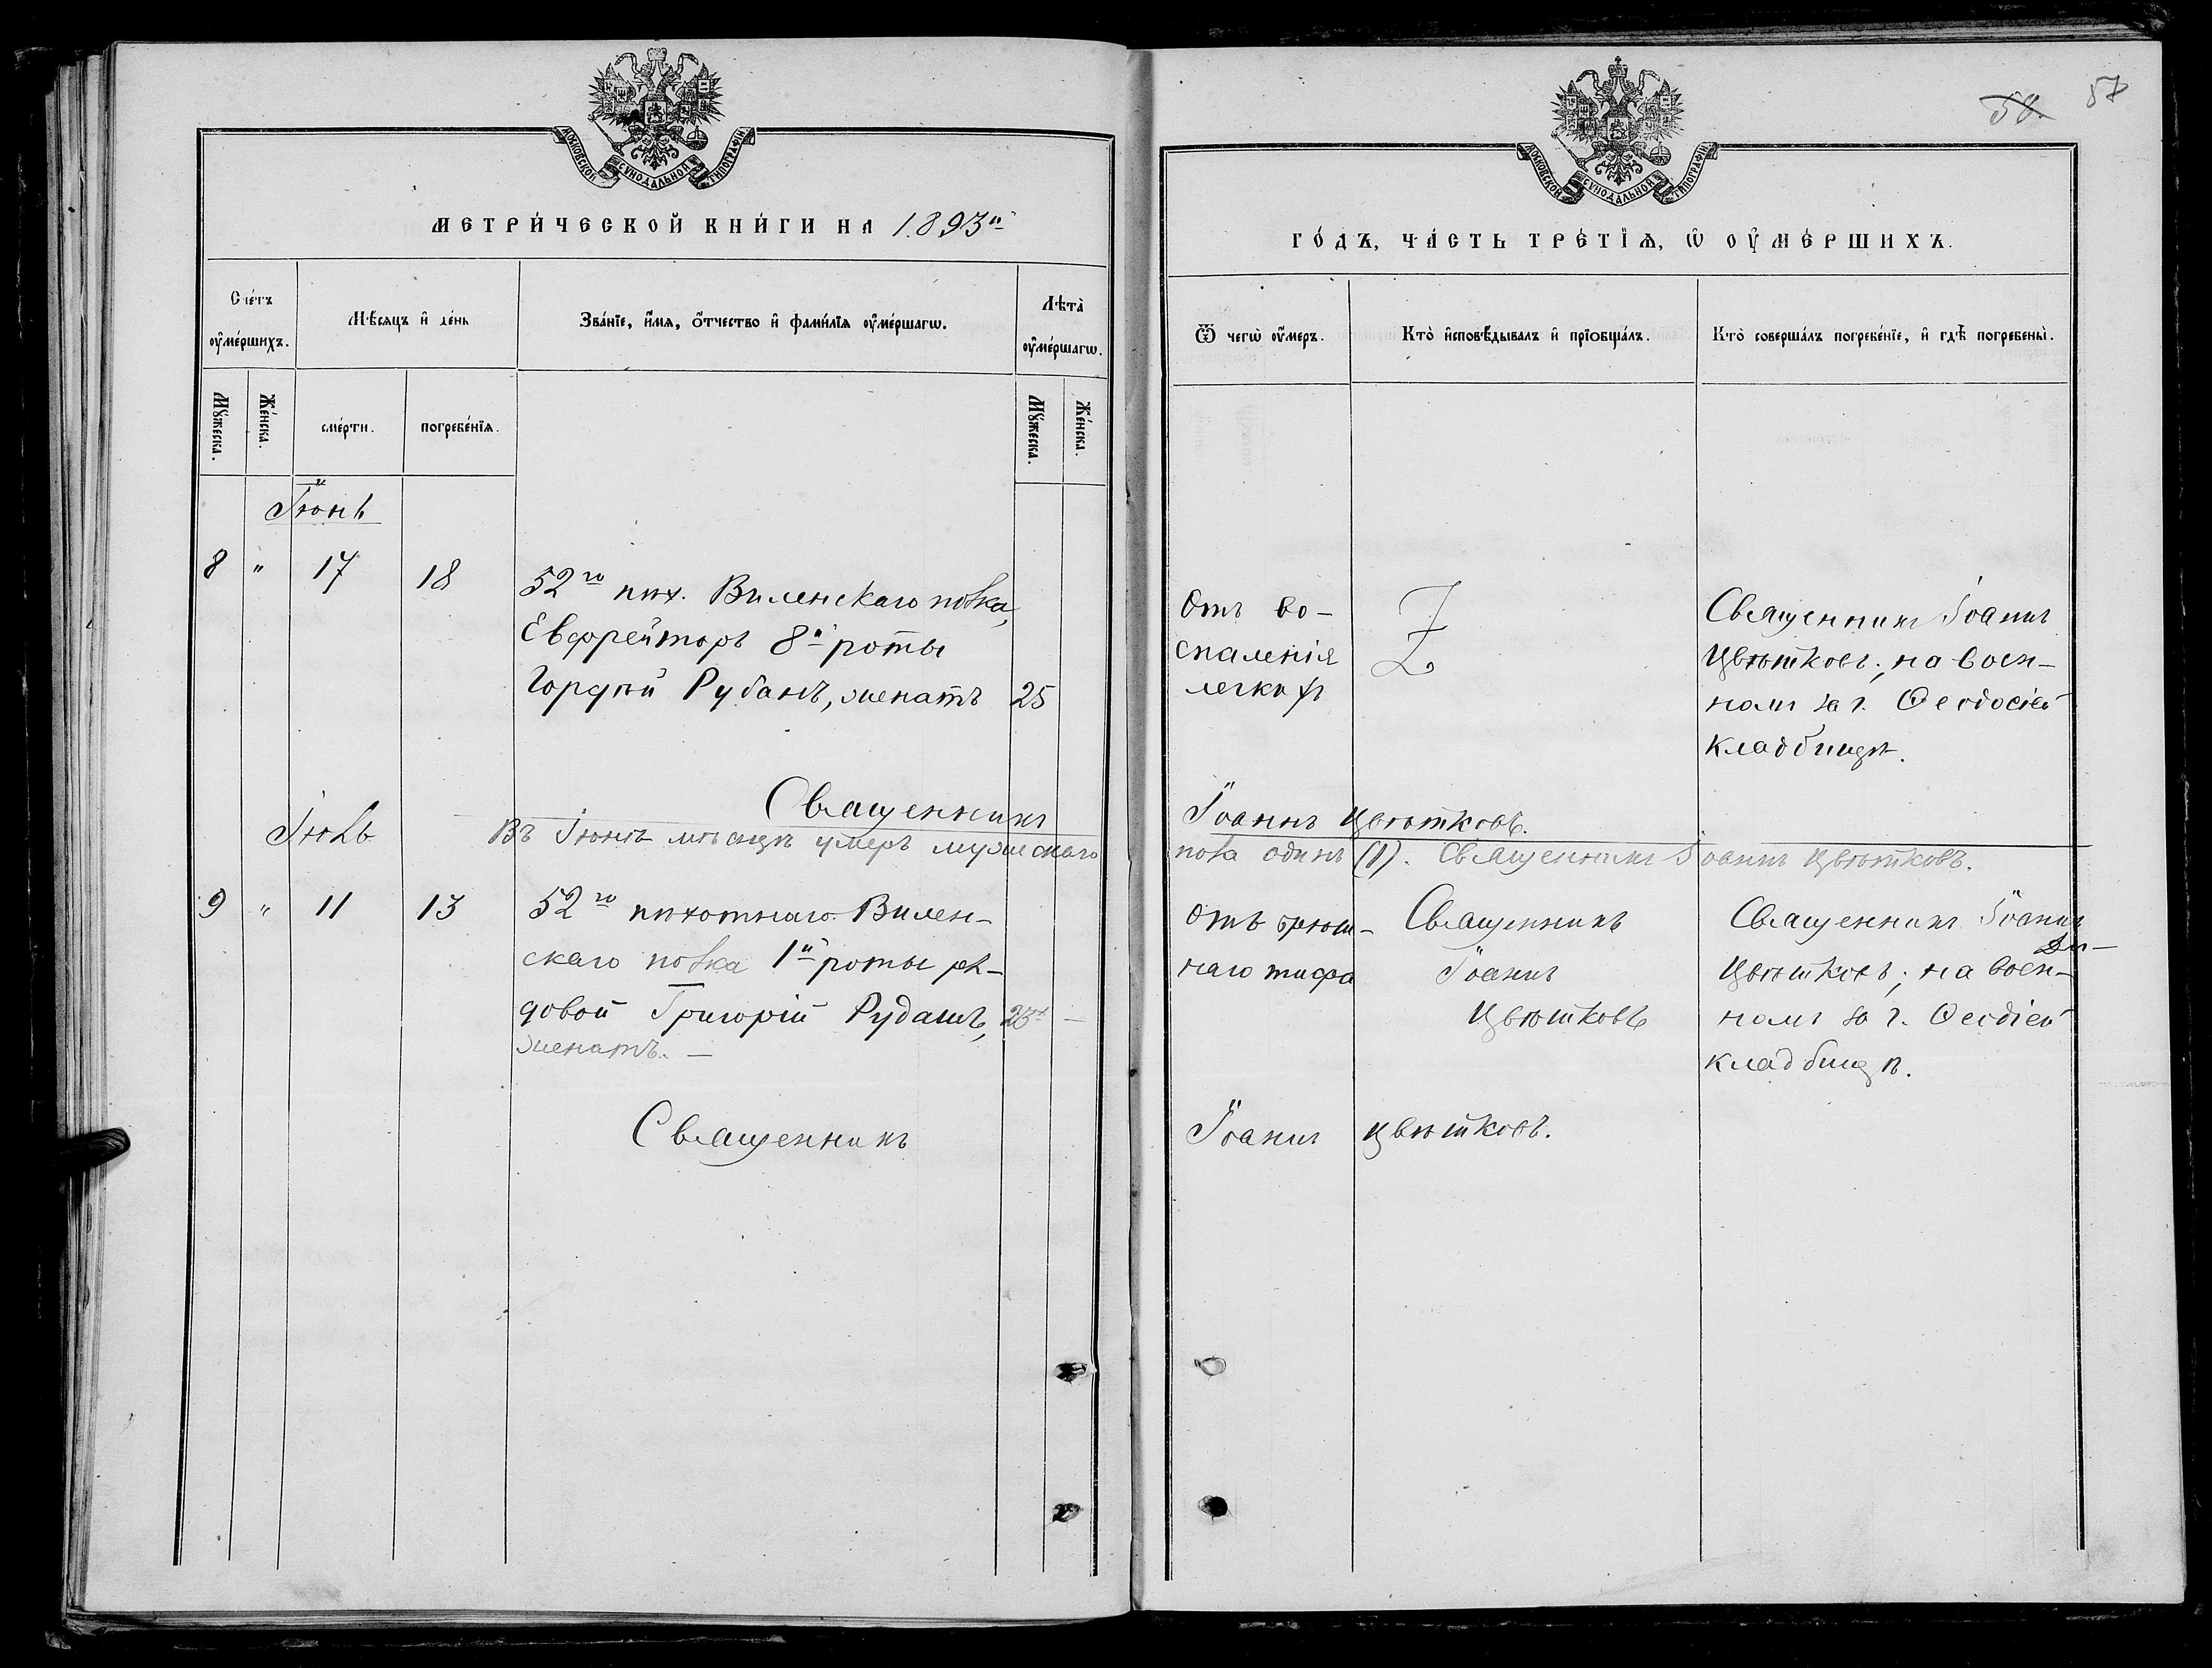 МОСКОВСКОЙ СѴНОДАЛЬНОЙ ТИПОГРАФІИ
МЕТРИ́ЧЕСКОЙ КНИ́ГИ НА 1893й
Сче́тъ ᲂу҆ме́ршихъ.
Мѣ́сяцъ и҆ де́нь
Зва́нїе, и҆́мя, ѻ҆́тчество и҆ фами́лїя ᲂу҆ме́ршагѡ.
Лѣта̀ ᲂу҆ме́ршагѡ.
Мꙋ́жеска.
Же́нска.
сме́рти.
погребе́нїя.
Мꙋ́жеска.
Же́нска.
Іюнь
8 " 17 18 52го пѣх. Виленскаго полка,
Евфрейторъ 8й роты
Гордѣй Рубанъ, женатъ 25
Священникъ
Іюль
Въ Іюнѣ мѣсяцѣ умеръ мужескаго
9 " 11 13 52го пѣхотнаго Вилен-
скаго полка 1й роты ря-
довой Григорій Рудашъ, 25
женатъ. —
Священникъ
58. 57
МОСКОВСКОЙ СѴНОДАЛЬНОЙ ТИПОГРАФІИ
ГО́ДЪ, ЧА́СТЬ ТРЕ́ТЇѦ, Ѡ҆ ОУ҆МЕ́РШИХЪ.
Ѿ чегѡ̀ ᲂу҆́меръ.
Кто̀ и҆сповѣ́дывалъ и҆ прїобща́лъ.
Кто̀ соверша́лъ погребе́нїе, и҆ гдѣ̀ погребены̀.
Отъ во-
спаленія
легкихъ
Z
Священникъ Іоаннъ
Цвѣтковъ; на воен-
номъ за г. Ѳеодосіей
кладбищѣ.
Іоаннъ Цвѣтковъ.
пола одинъ (1). Священникъ Іоаннъ Цвѣтковъ.
Отъ брюш-
наго тифа
Священникъ
Іоаннъ
Цвѣтковъ
Священникъ Іоаннъ
Цвѣтковъ; на воен-
номъ за г. Ѳеодіей
кладбищѣ.
Іоаннъ Цвѣтковъ.